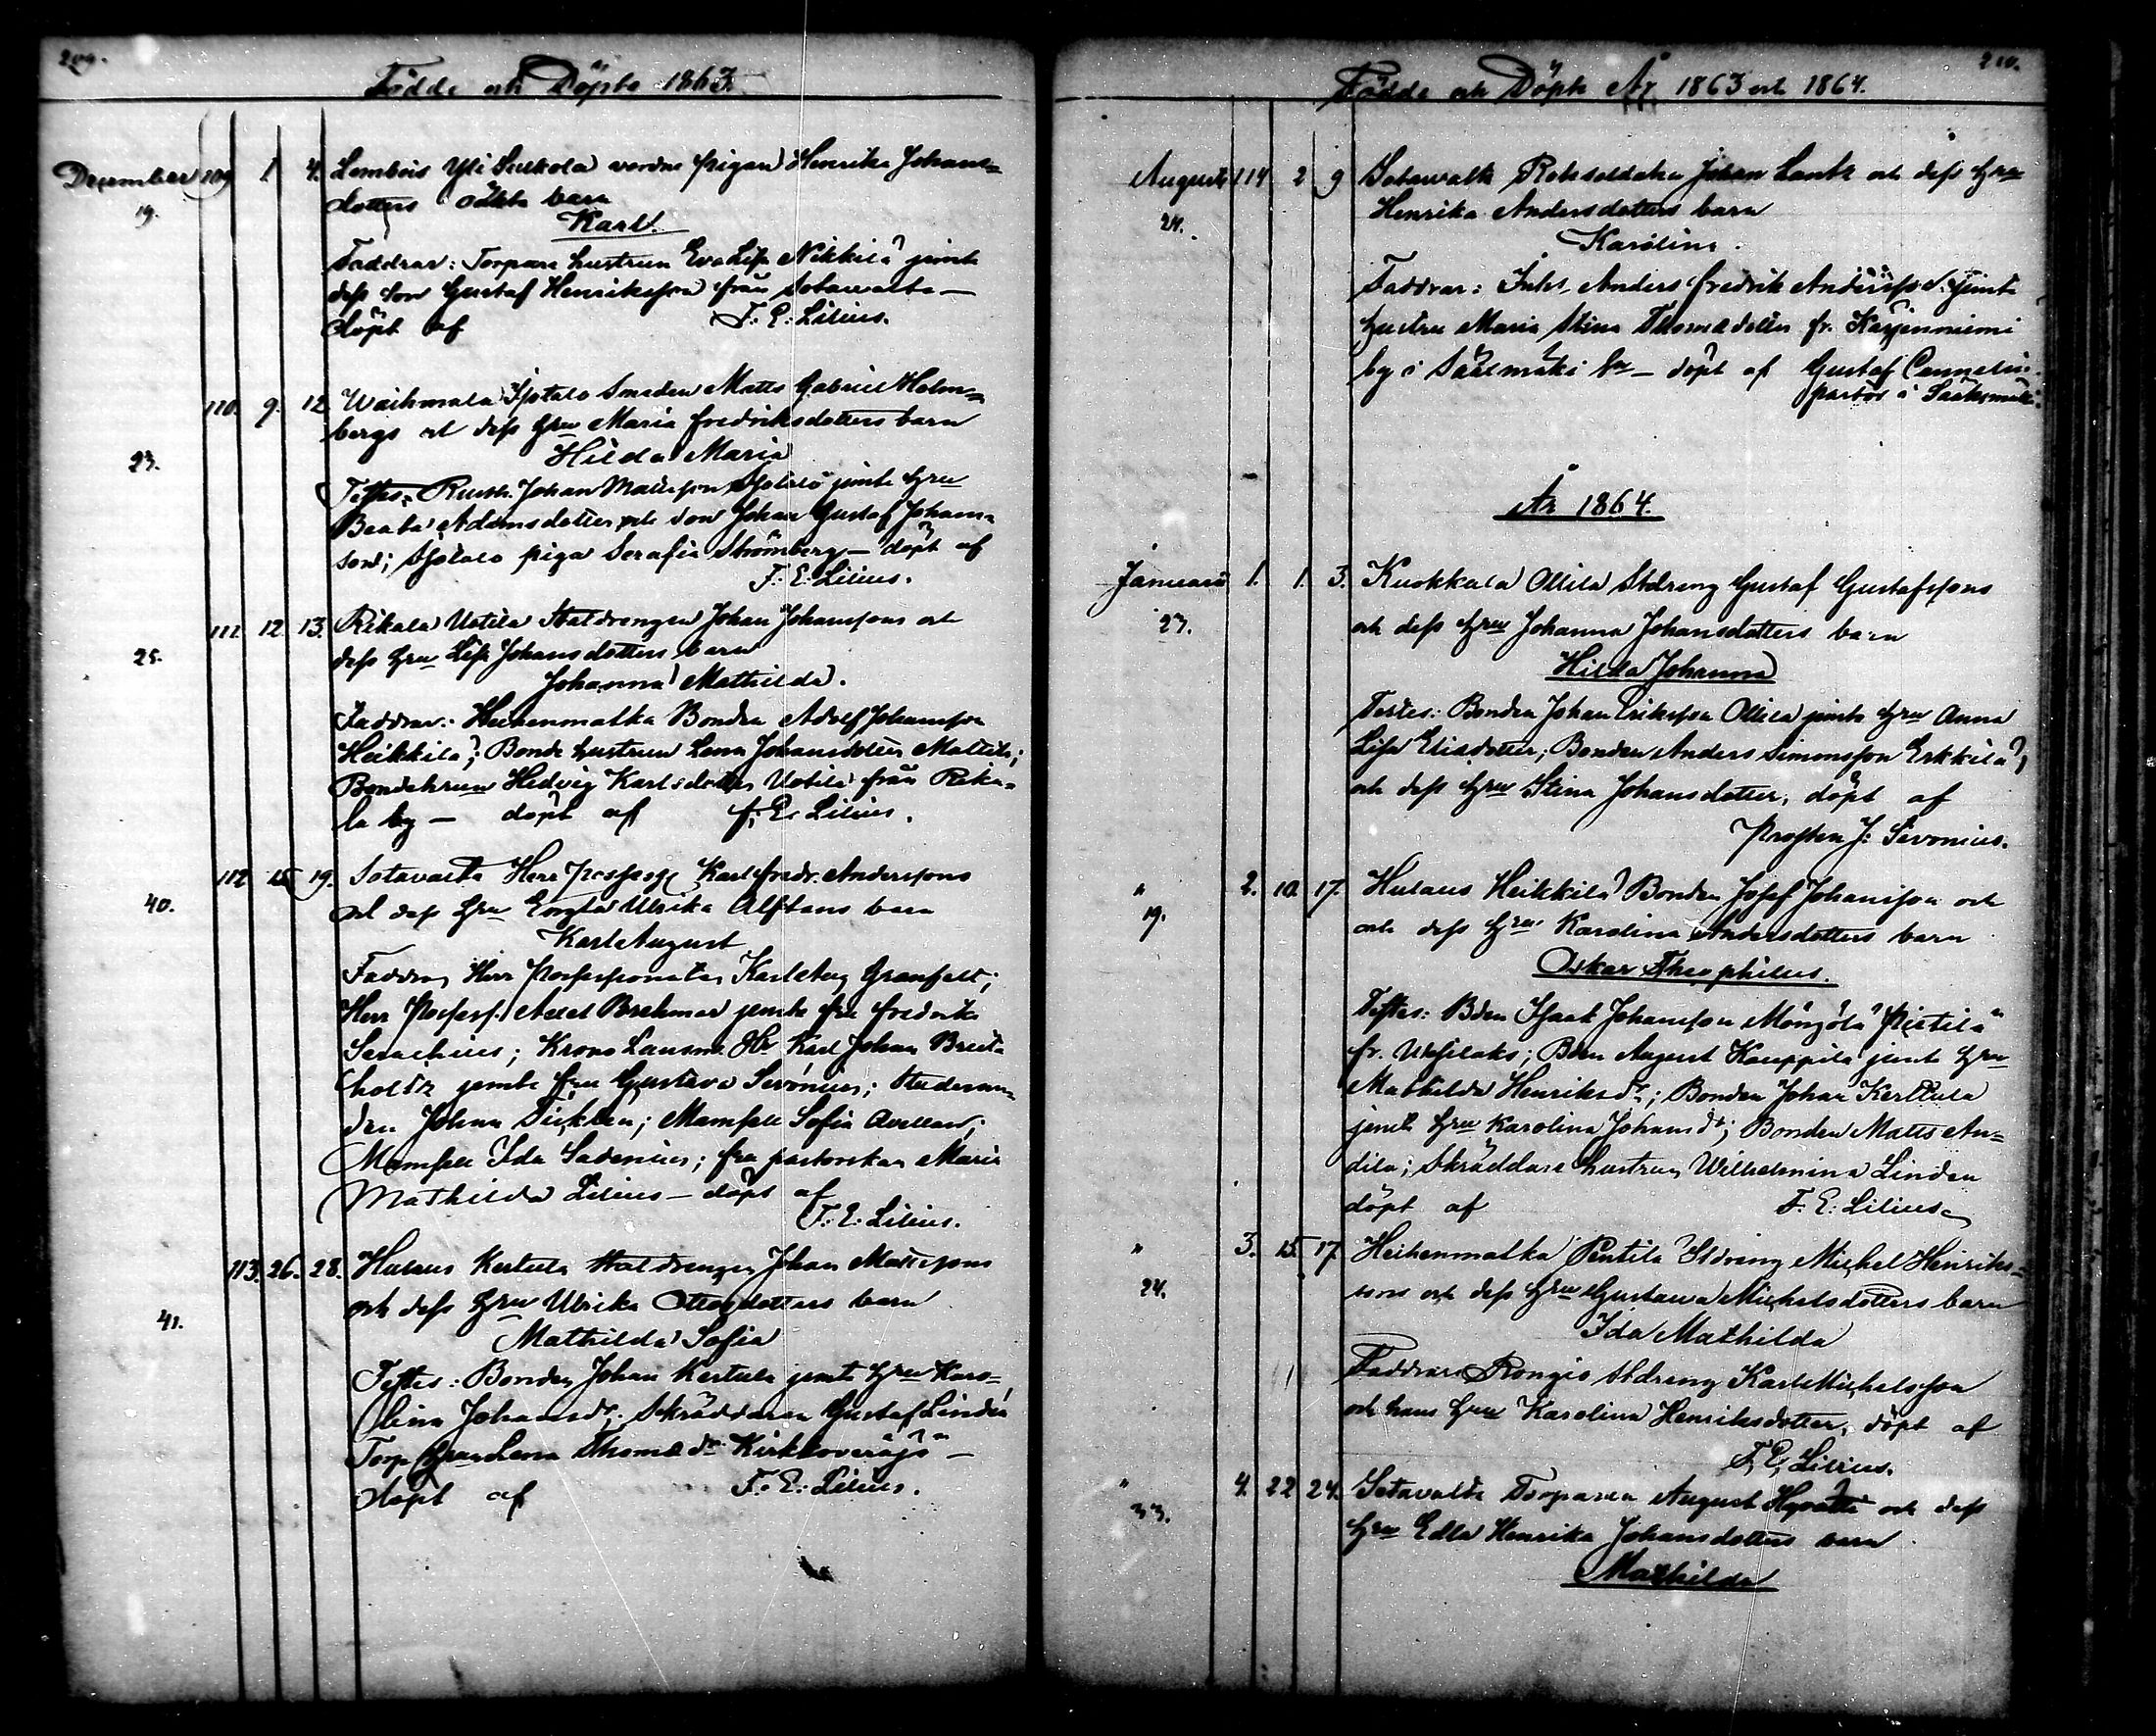 209.
Födde och Döpte År 1863.
December 109 1 4. Lembois Yli Seukola vordne pigan Henrika Johans=
19. dotters oäkta barn
Karl.
Faddrar: Torpare hustrun Eva Lisa Nikkilä jemte
dess son Gustaf Henriksson från Sotavalta —
döpt af F. E. Lilius.
110. 9. 12. Waihmala Isotalo Smeden Matts Gabriel Holm=
bergs och dess hru Maria Fredriksdotters barn
23. Hilda Maria
Testes: Rusth. Johan Mattsson Isotalo jemte hru
Beata Adamsdotter och son Johan Gustaf Johans=
son; Isotalo piga Serafia Strömberg — döpt af
F. E. Lilius.
111 12. 13. Rikala Uotila Staldrengen Johan Johanssons och
25. dess hru Lisa Johansdotters barn
Johanna Mathilda.
Faddrar: Heihenmatka Bonden Adolf Johansson
Heikkilä; Bonde hustrun Lena Johansdotter Mattila;
Bondehrun Hedvig Karlsdotter Uotila från Rika=
la by — döpt af F. E. Lilius.
112 15 19. Sotavalta Herr Possess. Karl Fredr. Anderssons
40. och dess hru Ulrika Alftans barn
Karl August
Faddrar Herr Possessionaten Karl Granfelt;
Herr Possess. Axel Brehmer jemte fru Fredrika
Serachius; Krono Länsm. Karl Johan Breit=
holtz jemte fru Gustava Sevonius; Studeran=
den Johan; Mamsell Sofia Avellan;
Mamsell Ida Sadenius; fru pastorskan Maria
Mathilda Lilius — döpt af
F. E. Lilius.
113. 26. 28. Hulaus Kertula Staldrengen Johan Mattssons
och dess hru Ulrika Ottosdotters barn
41. Mathilda Sofia
Testes: Bonden Johan Kertula jemte hru Karo=
lina Johansdr; Skräddaren Gustaf Lindén
Torp. hrun Lena Thomædr Kirkkoveräjä —
döpt af F. E. Lilius.
210.
Födde och Döpte År 1863 och 1864.
Augusti 114 2 9 Sotavalta Rotesoldaten Johan Lantz och dess hru
24. Henrika Andersdotters barn
Karolina.
Faddrar: Inhs. Anders Fredrik Andersson jemte
hustru Maria Stina Thomædotter fr. Karjenniemi
by i Sääksmäki Sn — döpt af Gustaf Cannelin
pastor i Sääksmäki.
År 1864.
Januari 1. 1. 3. Kuokkala Ollila Stdreng Gustaf Gustafssons
23. och dess hru Johanna Johansdotters barn
Hilda Johanna
Testes: Bonden Johan Eriksson Ollila jemte hru Anna
Lisa Eliædotter; Bonden Anders Simonsson Erkkilä;
och dess hru Stina Johansdotter, döpt af
Prosten J. Sevonius.
" 2. 10. 17. Hulaus Heikkilä Bonden Josef Johansson och
19. och dess hru Karolina Andersdotters barn
Oskar Theophilus.
Testes: Bden Isaak Johansson Möngölä Pietilä
fr. Wesilaks; Bden August Kauppila jemte hru
Mathilda Henriksdr; Bonden Johan Kerttula
jemte hru Karolina Johansdr; Bonden Matts An=
dila; Skräddare hustrun Wilhelmina Linden
döpt af F. E. Lilius
" 3. 15. 17. Heihenmatka Pentila Stdreng Michel Henriks=
24. sons och dess hru Gustava Michelsdotters barn
Ida Mathilda
Faddrar: Rongis Stdreng Karl Michelsson
och hans hru Karolina Henriksdotter, döpt af
F. E. Lilius.
" 4. 22 24. Sotavalta Torparen August Hyvätti och dess
33. hru Edla Henrika Johansdotters barn
Mathilda